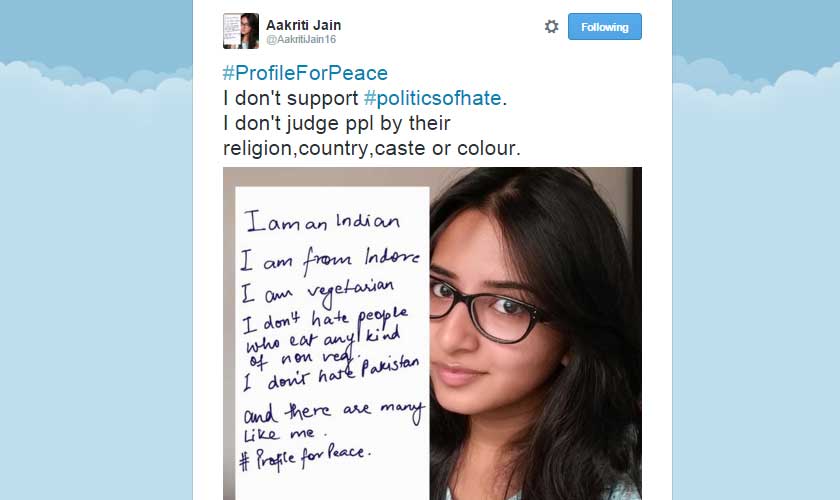 Aakriti Jain
@AakritiJain16
Following
#ProfileForPeace
I don't support #politicsofhate.
I don't judge ppl by their
religion,country,caste or colour.
I am an Indian
I am from Indore
I am vegetarian
I don't hate people
who eat any kind
of non veg.
I don't hate Pakistan
and there are many
like me.
# Profile for Peace.